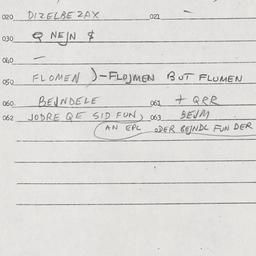 020 DIZELBEZAX 021 -
030 Q NEJN $
040 -
050 FLOMEN )-FLOJMEN BUT FLUMEN
060 BEJNDELE 061 + QRR
062 JODRE QE SID FUN, 063 BEJM
AN EPL ODER BEJNDL FUN DER